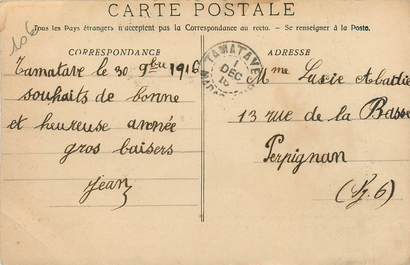 CARTE POSTALE
Tous les Pays étrangers n'acceptent pas la Correspondance au recto. - Se renseigner à la Poste.
106
CORRESPONDANCE
Tamatave le 30 9bre 1916
souhaits de bonne
et heureuse année
gros baisers
Jean
TAMATAVE
1
DEC
16
ADRESSE
Mme Lucie Abadie
13 rue de la Basse
Perpignan